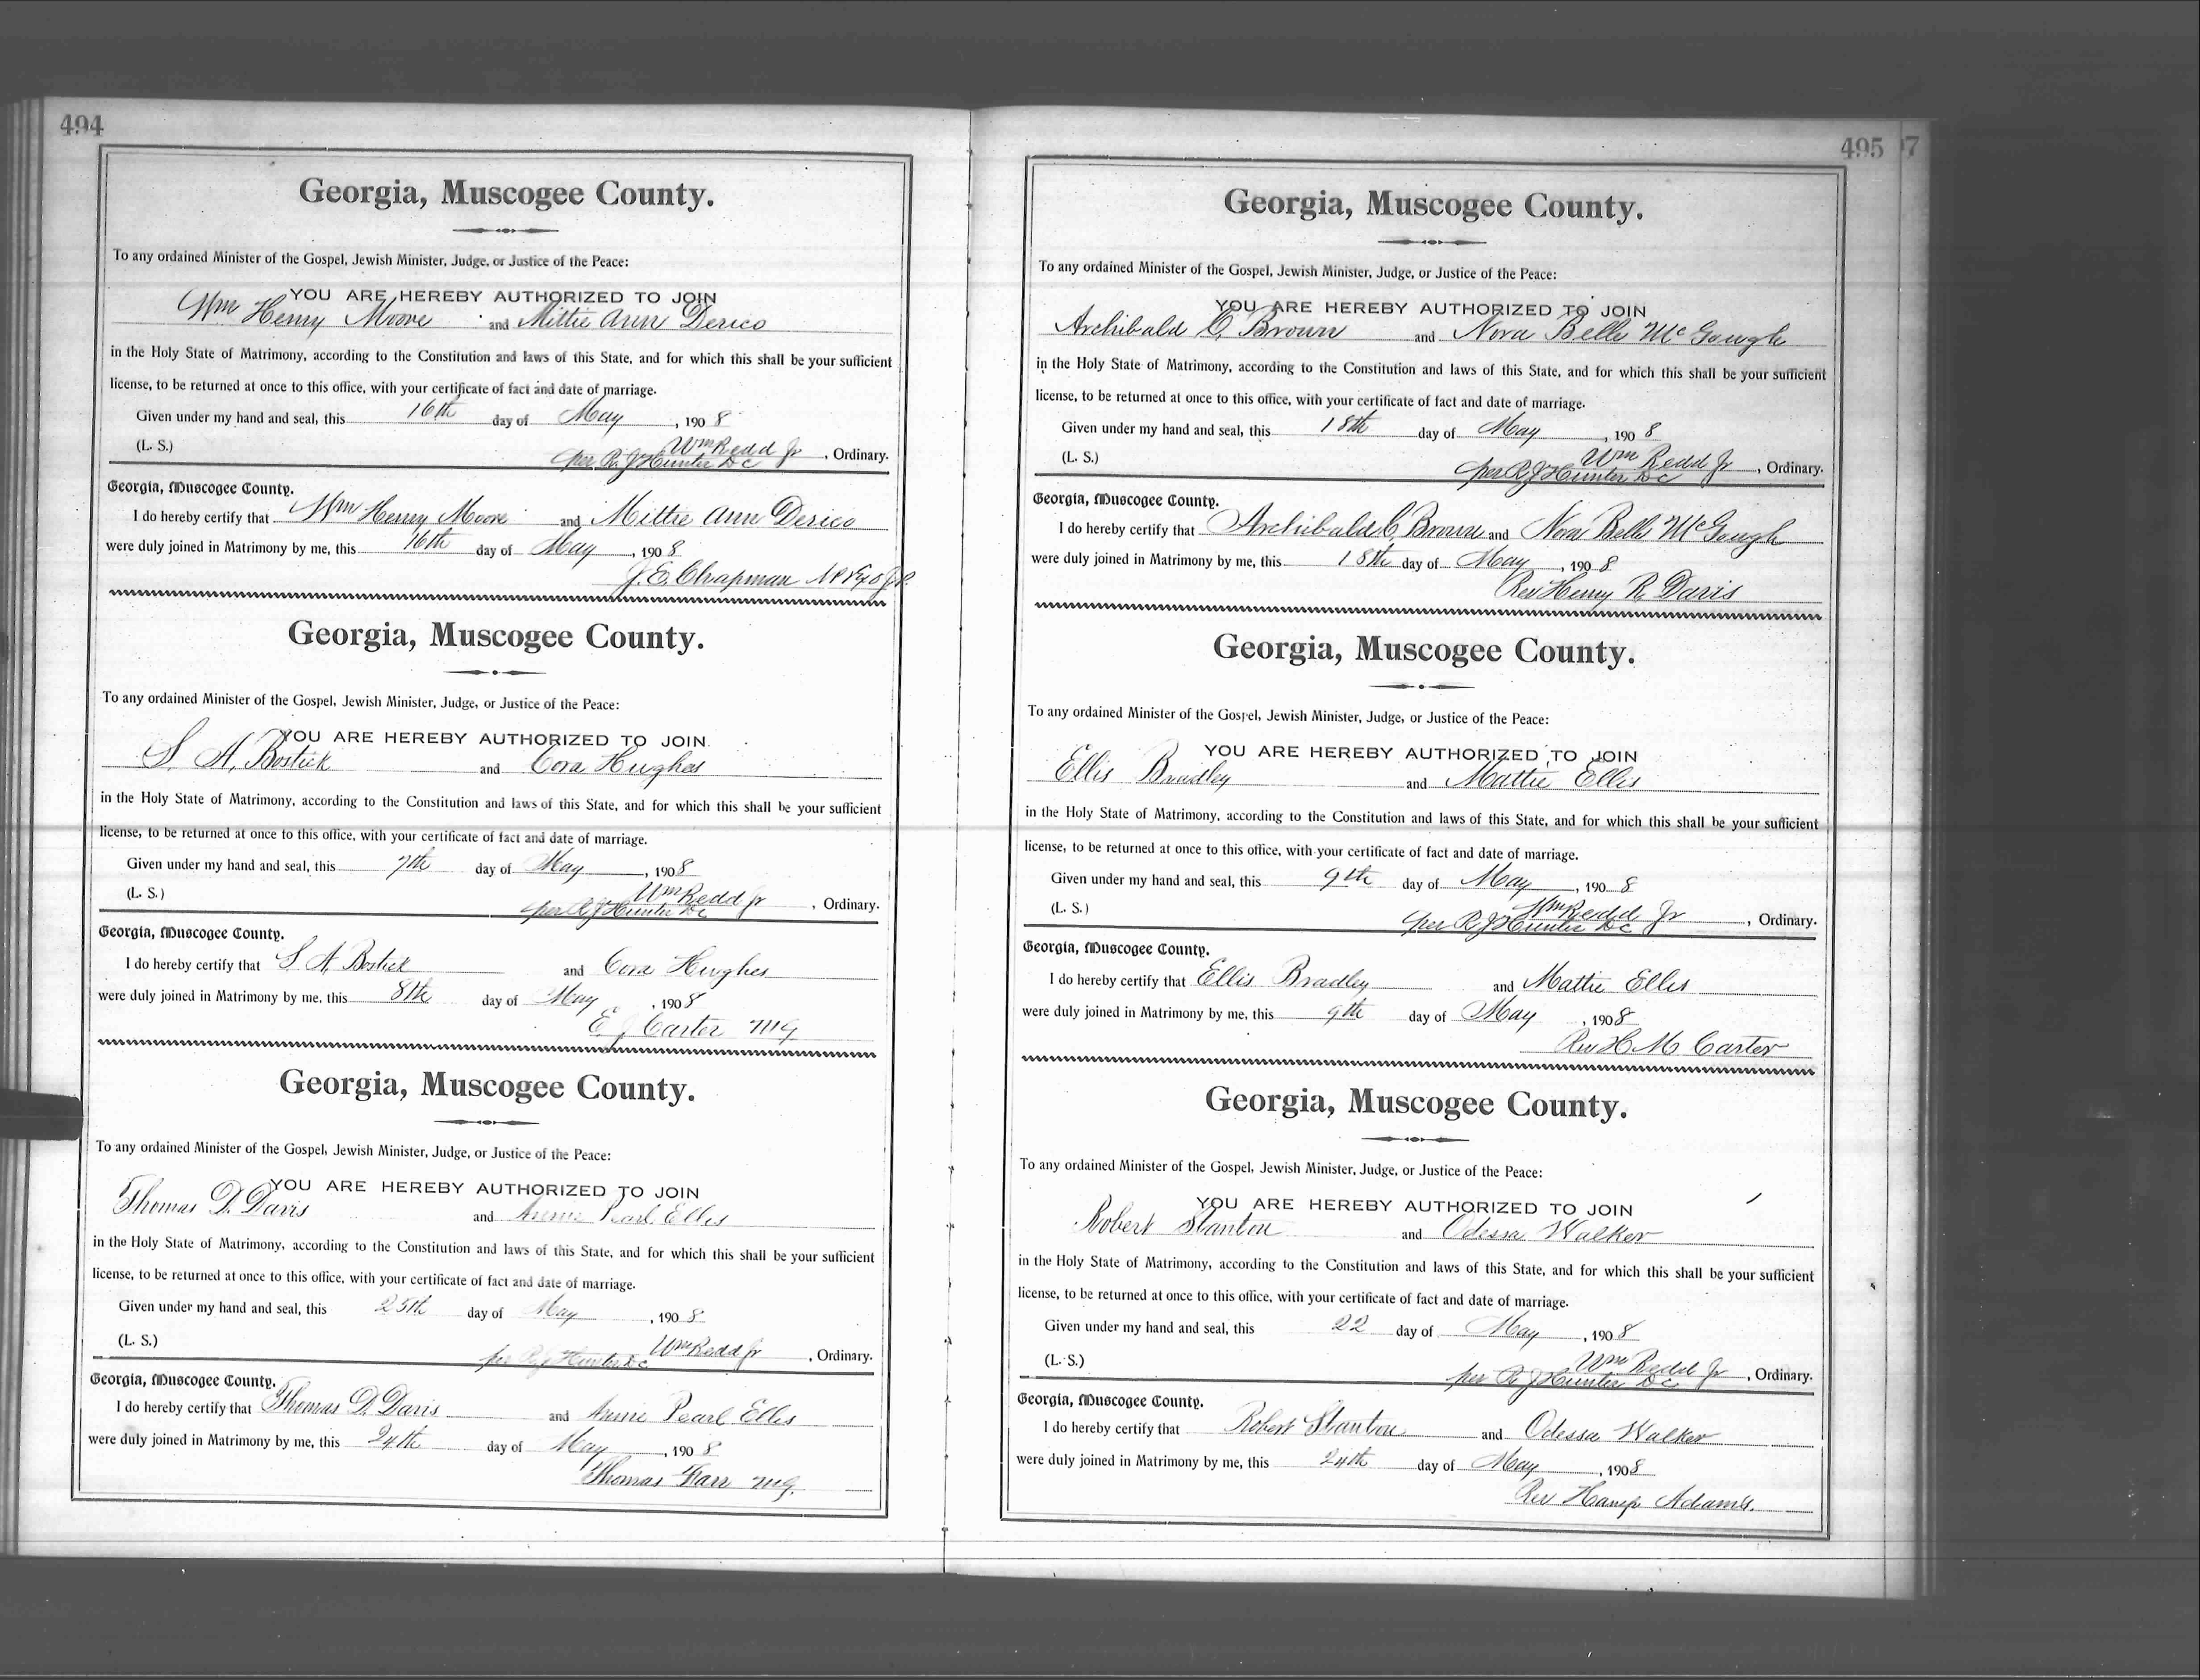 494
Georgia, Muscogee County.
To any ordained Minister of the Gospel, Jewish Minister, Judge, or Justice of the Peace:
YOU ARE HEREBY AUTHORIZED TO JOIN
Wm Henry Moore and Mittie Ann Derico
in the Holy State of Matrimony, according to the Constitution and laws of this State, and for which this shall be your sufficient
license, to be returned at once to this office, with your certificate of fact and date of marriage.
Given under my hand and seal, this 16th day of May, 1908
Wm Redd Jr
(L. S.) per R. J. Hunter DC, Ordinary.
Georgia, Muscogee County.
I do hereby certify that Wm Henry Moore and Mittie Ann Derico
were duly joined in Matrimony by me, this 16th day of May, 1908
J. E. Chapman
Georgia, Muscogee County.
To any ordained Minister of the Gospel, Jewish Minister, Judge, or Justice of the Peace:
YOU ARE HEREBY AUTHORIZED TO JOIN
S. A. Bostick and Cora Hughes
in the Holy State of Matrimony, according to the Constitution and laws of this State, and for which this shall be your sufficient
license, to be returned at once to this office, with your certificate of fact and date of marriage.
Given under my hand and seal, this 7th day of May, 1908
Wm Redd Jr
(L. S.) per R J Hunter DC, Ordinary.
Georgia, Muscogee County.
I do hereby certify that S. A. Bostick and Cora Hughes
were duly joined in Matrimony by me, this 8th day of May, 1908
E. J. Carter MG
Georgia, Muscogee County.
To any ordained Minister of the Gospel, Jewish Minister, Judge, or Justice of the Peace:
YOU ARE HEREBY AUTHORIZED TO JOIN
Thomas D. Davis and Annie Pearl Ellis
in the Holy State of Matrimony, according to the Constitution and laws of this State, and for which this shall be your sufficient
license, to be returned at once to this office, with your certificate of fact and date of marriage.
Given under my hand and seal, this 25th day of May, 1908
Wm Redd Jr
(L. S.) per R J Hunter DC, Ordinary.
Georgia, Muscogee County.
I do hereby certify that Thomas D. Davis and Annie Pearl Ellis
were duly joined in Matrimony by me, this 24th day of May, 1908
Thomas Farr MG.
495
7
Georgia, Muscogee County.
To any ordained Minister of the Gospel, Jewish Minister, Judge, or Justice of the Peace:
YOU ARE HEREBY AUTHORIZED TO JOIN
Archibald C. Brown and Nora Belle McGough
in the Holy State of Matrimony, according to the Constitution and laws of this State, and for which this shall be your sufficient
license, to be returned at once to this office, with your certificate of fact and date of marriage.
Given under my hand and seal, this 18th day of May, 1908
Wm Redd Jr
(L. S.) per R J Hunter DC, Ordinary.
Georgia, Muscogee County.
I do hereby certify that Archibald C. Brown and Nora Belle McGough
were duly joined in Matrimony by me, this 18th day of May, 1908
Rev Henry R. Davis
Georgia, Muscogee County.
To any ordained Minister of the Gospel, Jewish Minister, Judge, or Justice of the Peace:
YOU ARE HEREBY AUTHORIZED TO JOIN
Ellis Bradley and Mattie Ellis
in the Holy State of Matrimony, according to the Constitution and laws of this State, and for which this shall be your sufficient
license, to be returned at once to this office, with your certificate of fact and date of marriage.
Given under my hand and seal, this 9th day of May, 1908
Wm Redd Jr
(L. S.) per R J Hunter DC, Ordinary.
Georgia, Muscogee County.
I do hereby certify that Ellis Bradley and Mattie Ellis
were duly joined in Matrimony by me, this 9th day of May, 1908
Rev H. M. Carter
Georgia, Muscogee County.
To any ordained Minister of the Gospel, Jewish Minister, Judge, or Justice of the Peace:
YOU ARE HEREBY AUTHORIZED TO JOIN
Robert Stanton and Odessa Walker
in the Holy State of Matrimony, according to the Constitution and laws of this State, and for which this shall be your sufficient
license, to be returned at once to this office, with your certificate of fact and date of marriage.
Given under my hand and seal, this 22 day of May, 1908
Wm Redd Jr
(L. S.) per R J Hunter DC, Ordinary.
Georgia, Muscogee County.
I do hereby certify that Robert Stanton and Odessa Walker
were duly joined in Matrimony by me, this 24th day of May, 1908
Rev Hamp Adams.